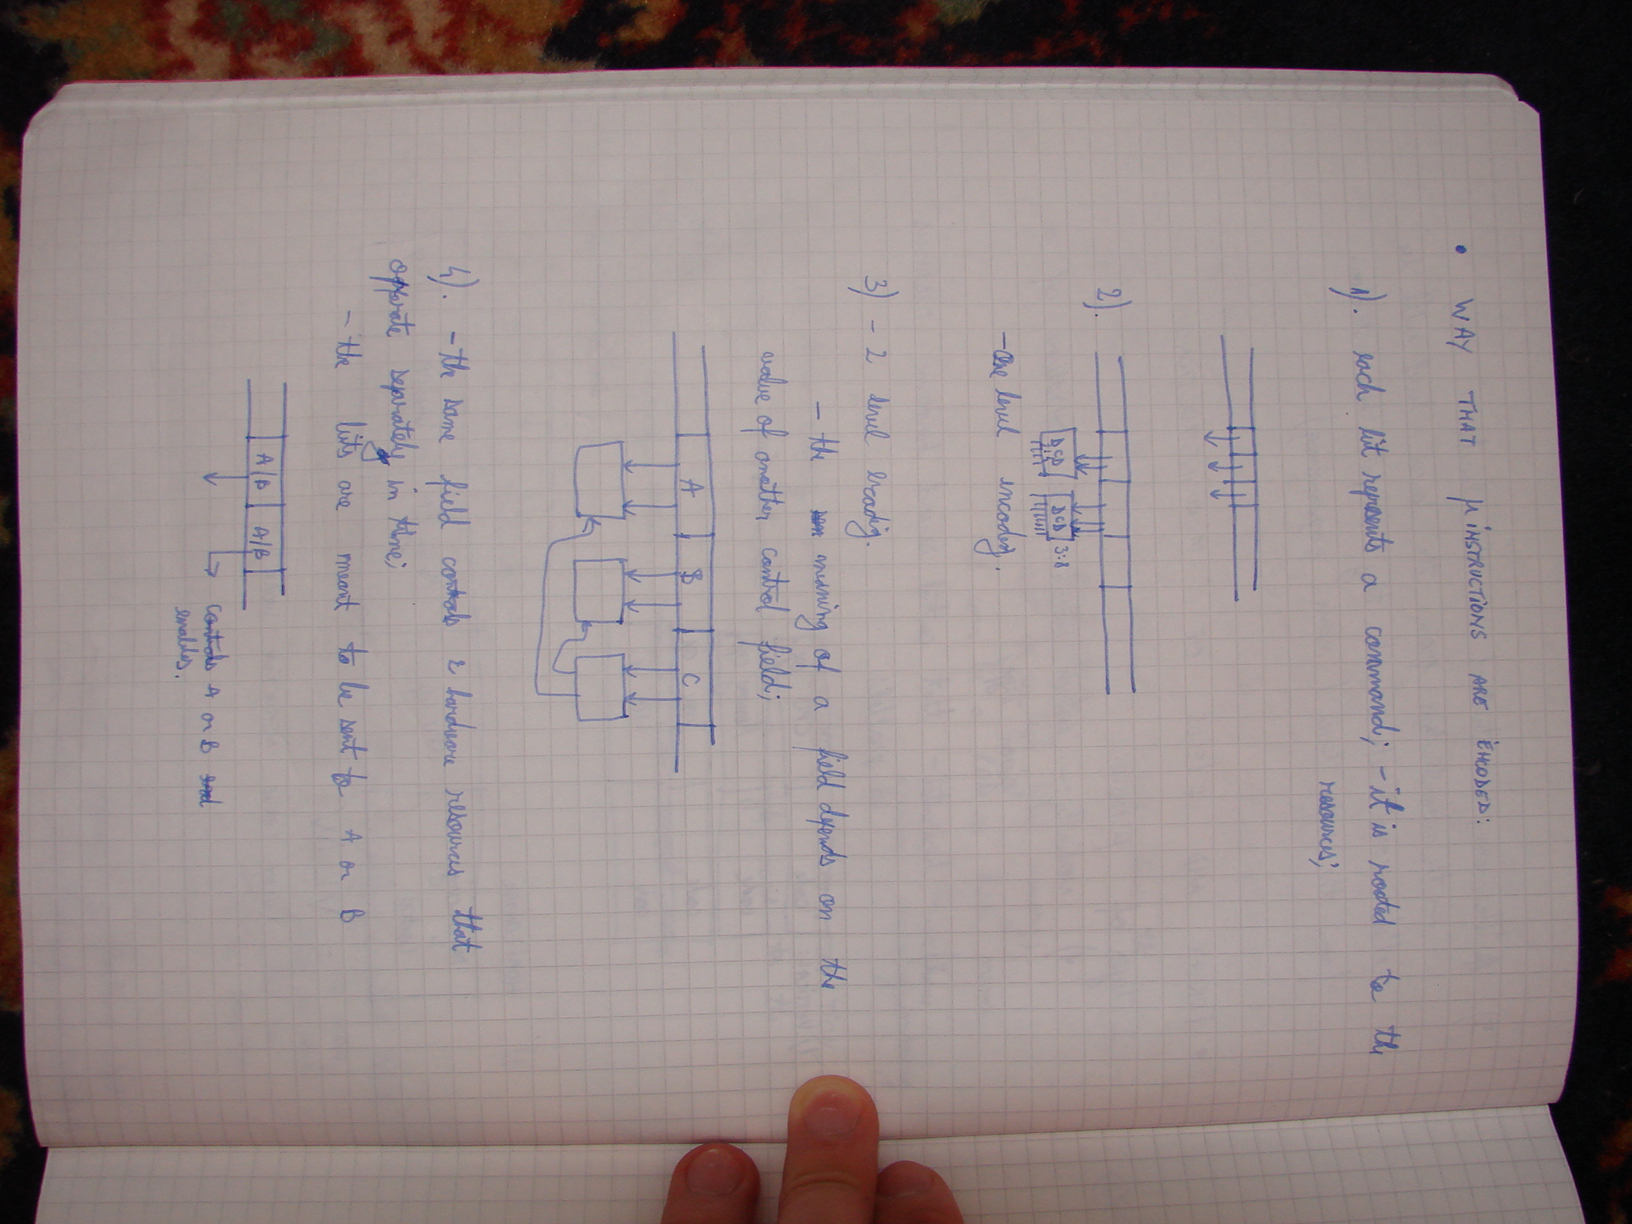 • WAY THAT μINSTRUCTIONS ARE ENCODED:
1). each bit represents a command; - it is rooted to the
resources;
2).
DCD DCD 3:8
- One level encoding.
3) - 2 level encoding.
- the meaning of a field depends on the
value of another control field;
A B C
4). - the same field controls 2 hardware resources that
opparate separately in time;
- the bits are meant to be sent to A or B
A/B A/B
controls A or B
enables.